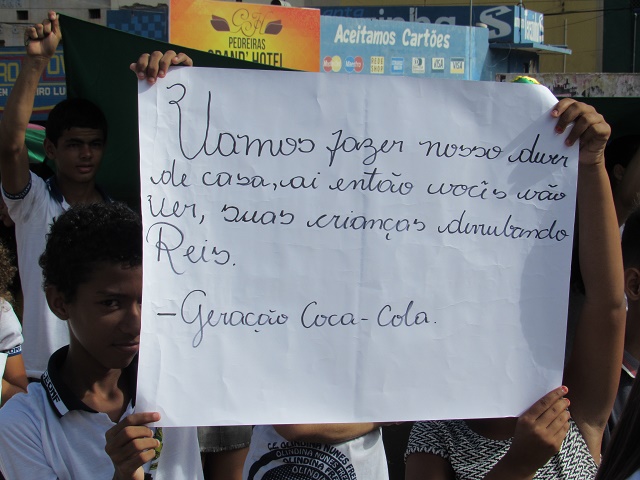 GSH
PEDREIRAS
GRAND' HOTEL
Aceitamos Cartões
VISA
VISA
Vamos fazer nosso dever
de casa, ai então vocês vão
ver, suas crianças derrubando
Reis.
- Geração Coca-Cola.
C.E. OLINDINA NUNES FREI
OLINDINA